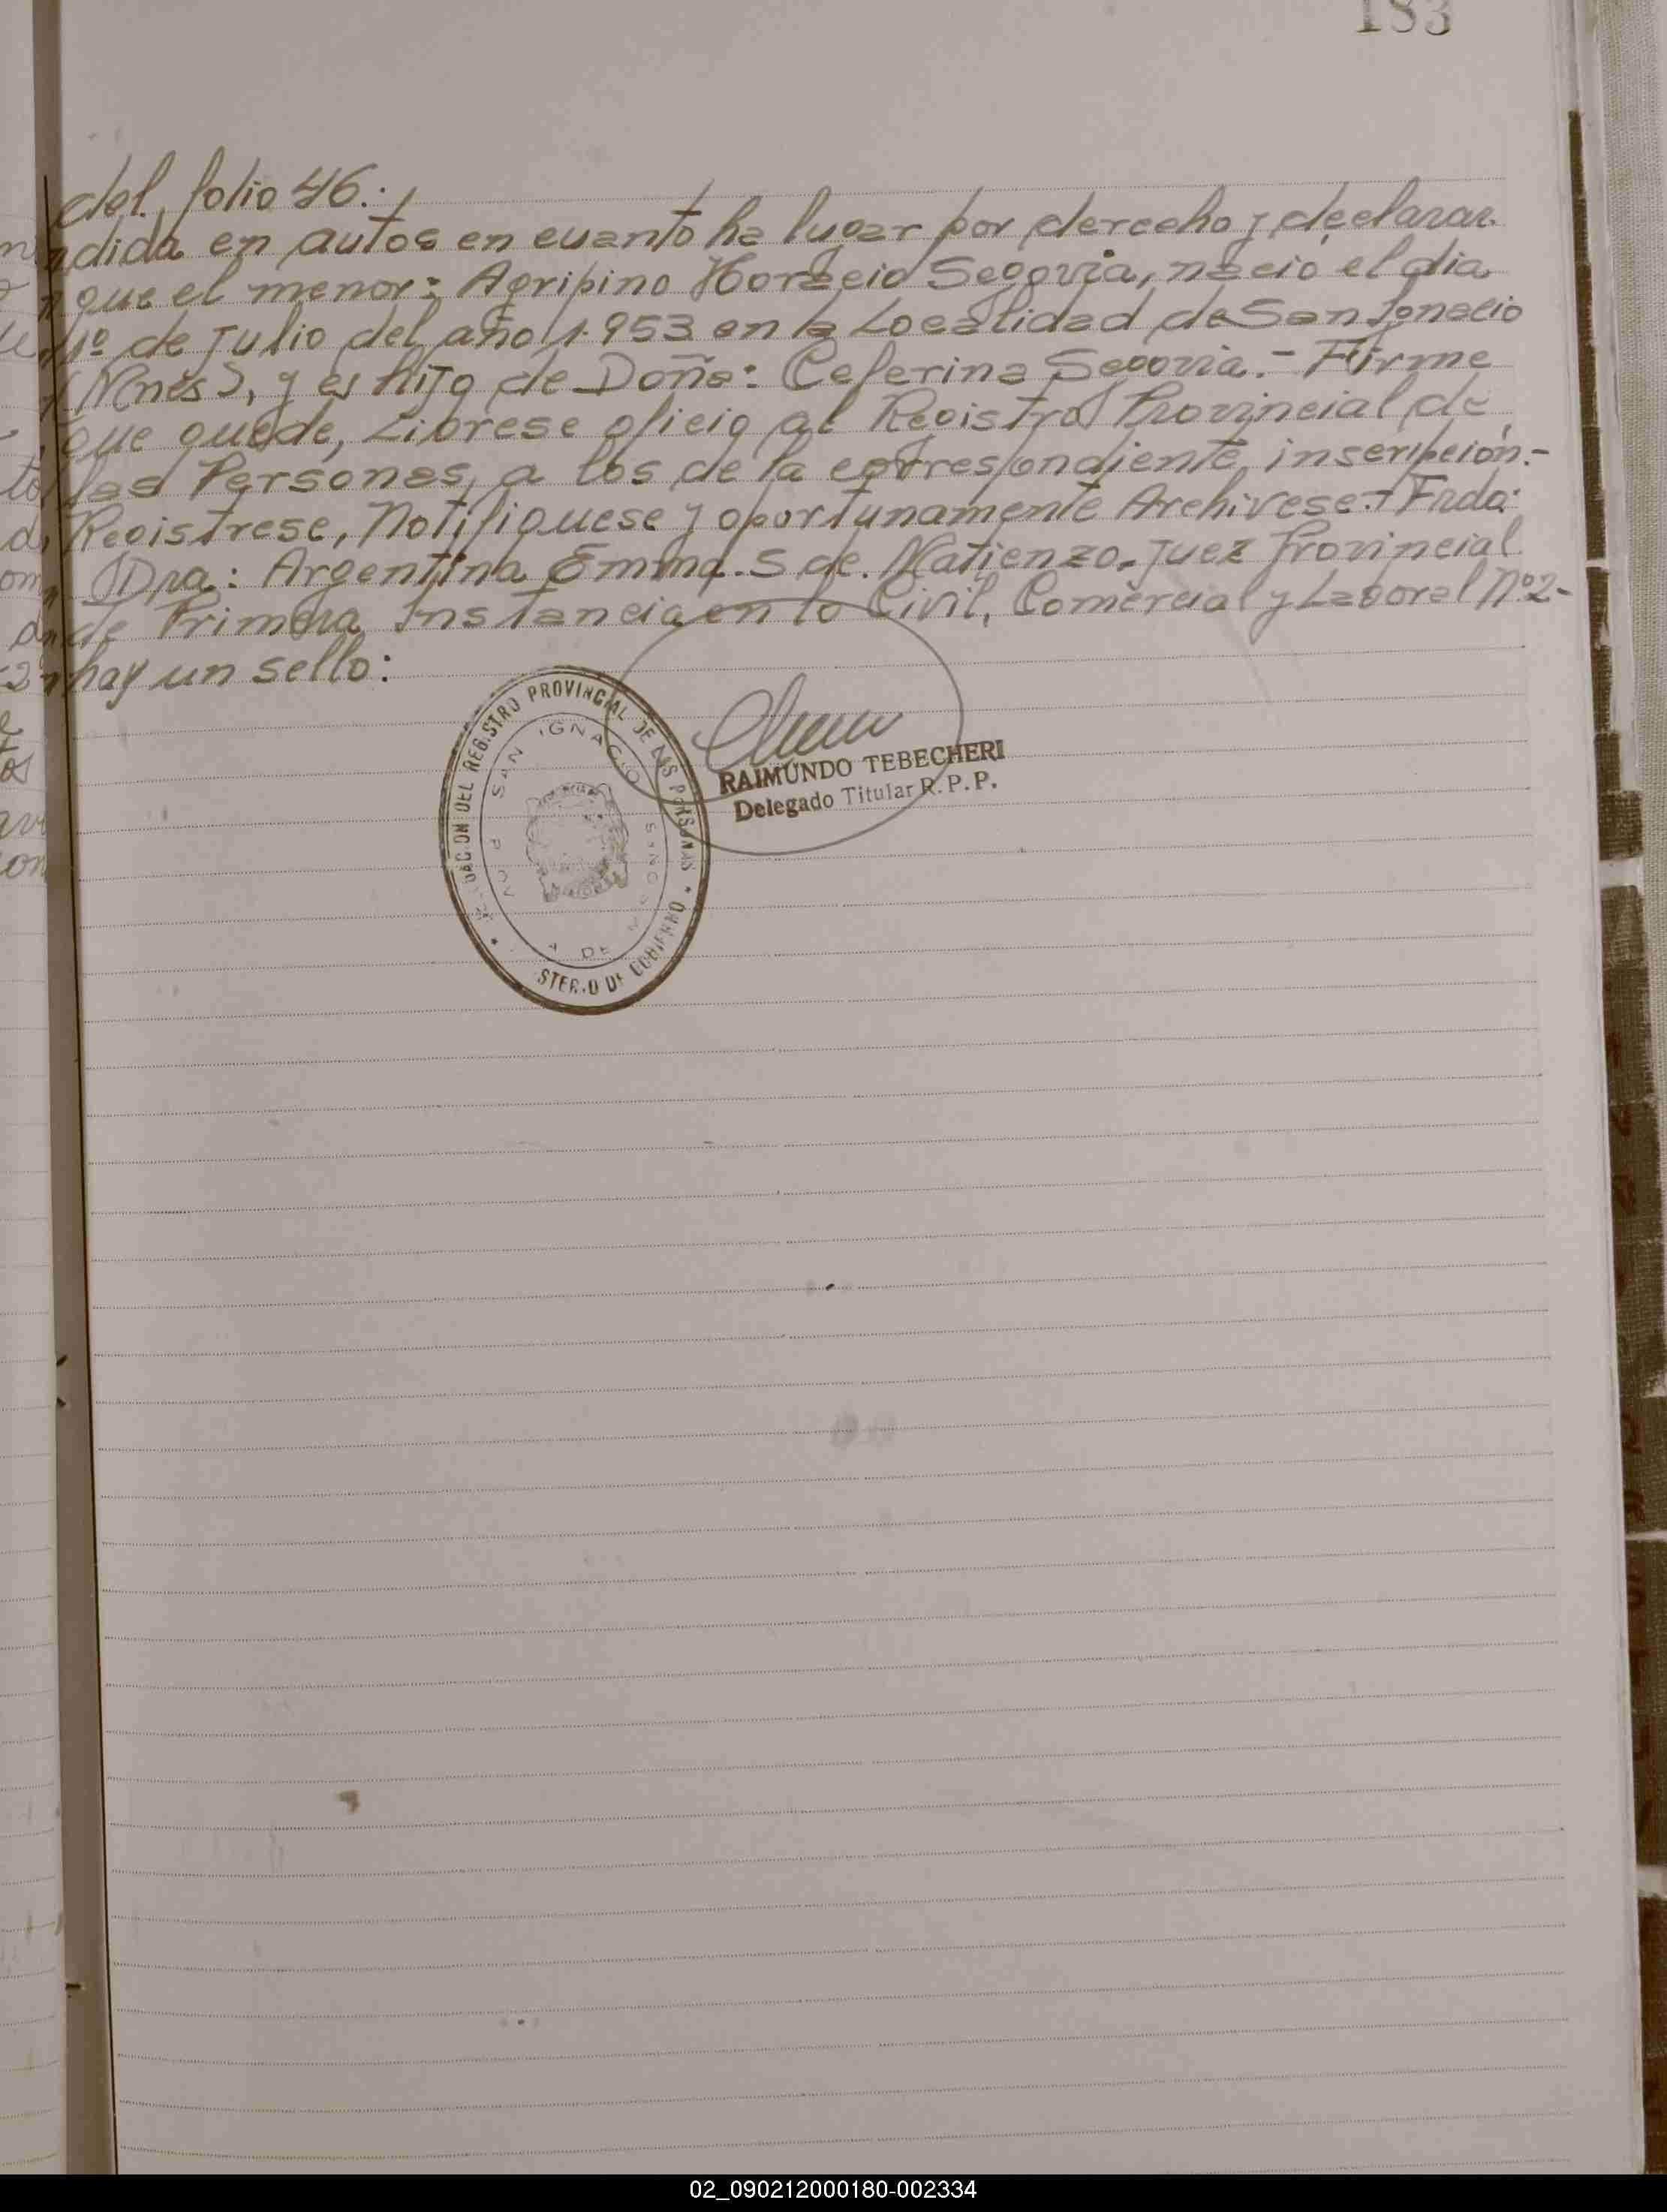 183
del folio 46:
ndida en autos en cuanto ha lugar por derecho y declarar
que el menor: Agripino Horacio Segovia, nacio el dia
1º de Julio del año 1.953 en la Localidad de San Ignacio
(Mnes), y es hijo de Doña: Ceferina Segovia.- Firme
que quede, Librese oficio al Registro Provincial de
las Personas, a los de la correspondiente inscripción.-
Registrese, Notifiquese y oportunamente Archivese.- Fdo:
Dra: Argentina Emma. S de. Matienzo. Juez Provincial
de Primera Instancia en lo Civil, Comercial y Laboral Nº2-
hay un sello:
DEL REGISTRO PROVINCIAL DE LAS PERSONAS
SAN IGNACIO
RAIMUNDO TEBECHERI
Delegado Titular R.P.P.
02_090212000180-002334